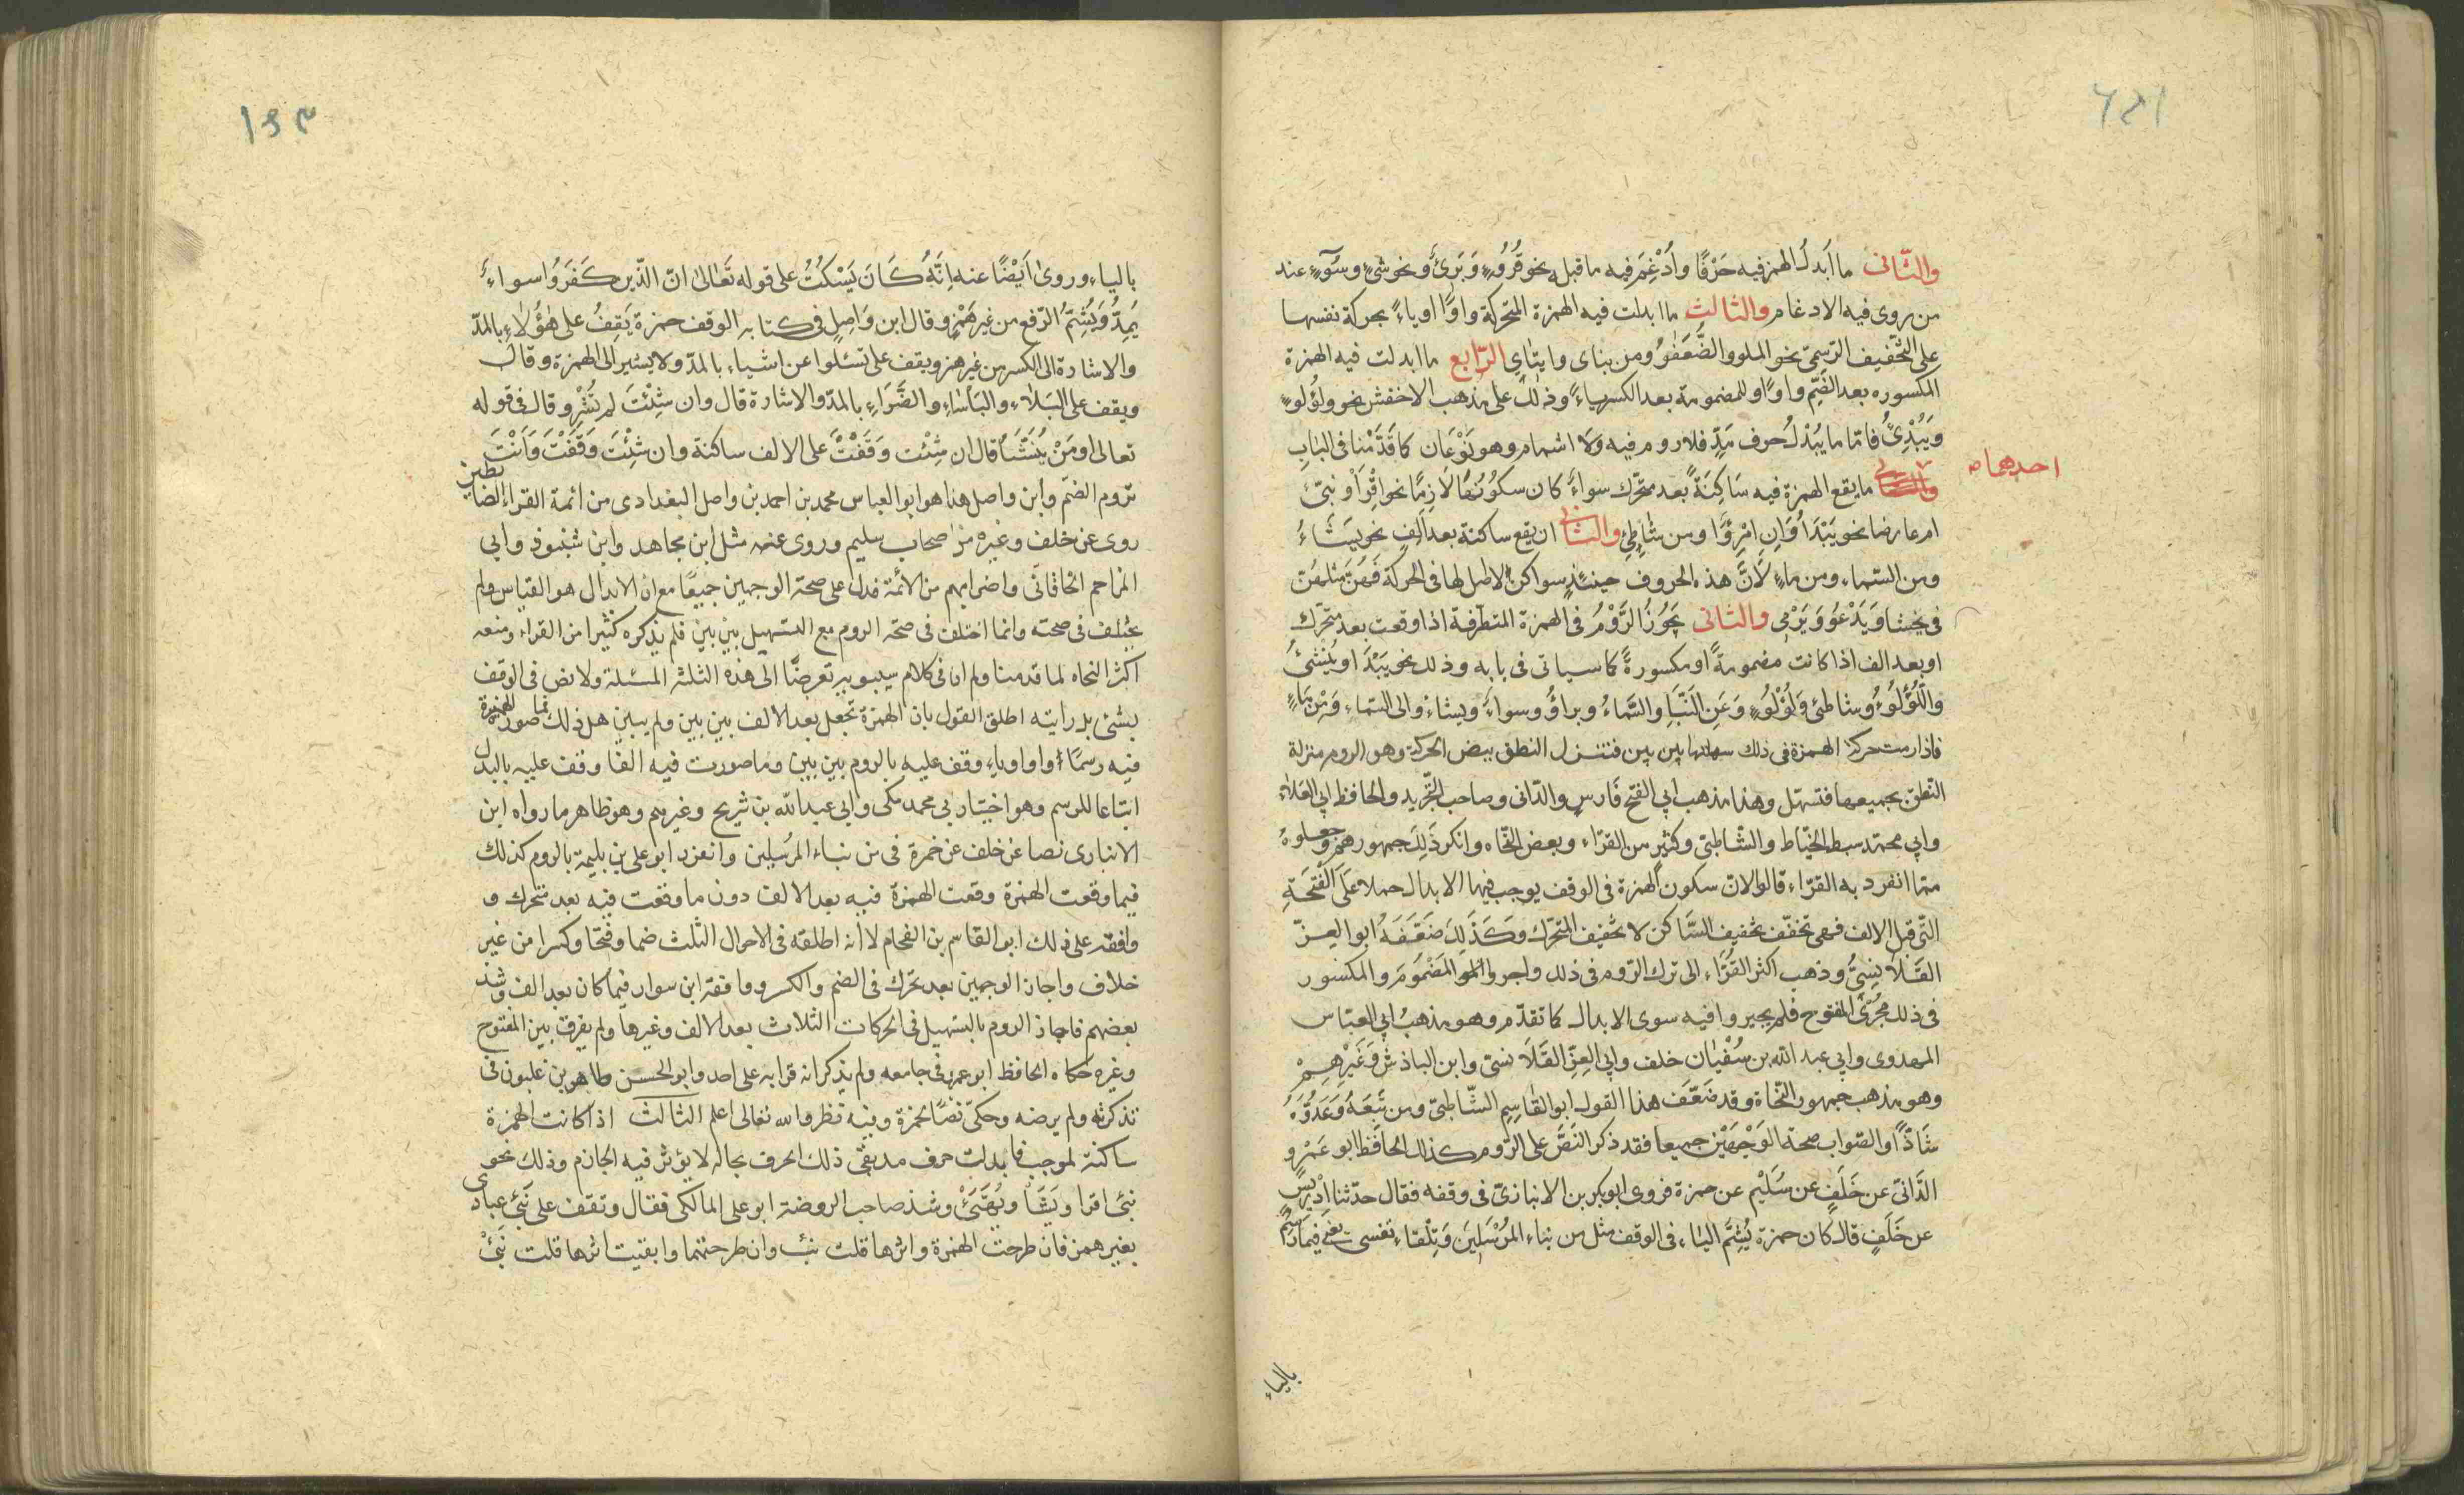 والثّانى ما اَبدلُ الهمز فيه حَرْفًا واُدْغِمَ فيه ماقبل نحو قُرُوٍّ وَبَرىٌّ ونحو شىٍّ وسَوٍّ عند
من روى فيه الادغام والثالث ما ابدلت فيه الهمزة المتحركة واوًا اوياءً بحركة نفسها
على التخفيف الرّسمىّ نحو الملوو الضُّعَفٰوُ ومن بناى وايتاي الرّابع ما ابدلت فيه الهمزة
المكسوره بعد الضّم واوًا والمضمومة بعد الكسرياءً وذلك على مذهب الاخفش نحو ولؤلوٍ
ويَبُدِىُ فاما ما يُبْدلُ حرف مَدٍّ فلا روم فيه وَلَا اشمام وهو نَوْعَان كما قَدَّمْنا فى البٰابِ
احدهما
ما يقع الهمزة فيه سَاكِنَةً بعد متحرّك سواءً كان سكونُهَا لَازِمًا نحو اقْرَأْ ونبّئ
ام عارضا نحو يَبْدَأُ وَاِنِ امْرِؤٌا ومن شٰاطِئِ والثانى ان يقع ساكنة بعد الفٍ نحو يَشَاءُ
ومن السّماءِ ومن ماءٍ لِاَنَّ هذه الحروف حينئذٍ سواكن لا اصل لها فى الحركة فَهُنَّ مثلهُنّ
فى يخشا وَيَدْعُو وَيَرْمِى والثانى يَجُوزُ الرَّوْمُ فى الهمزة المتطرّفة اذا وقعت بعد متحرّك
او بعد الف اذا كانت مضمومةً او مكسورةً كما سياتى فى بابه وذلك نحو يَبْدَأ ويُنْشِئُ
والّلُؤلُوءُ وشاطئ وَلُؤْلُوءٍ وَعَنِ النَّبَأِ والسَّمٰاءُ وبراؤُ وسواءٌ ويشاءُ والى السّماءِ وَمِنْ مَاءٍ
فاذا رمت حركة الهمزة فى ذلك سهلتها بين بين فتنزل النطق ببعض الحركة وهو الروم منزلة
النّطق بجميعها فتسهّل وهذا مذهب ابي الفتح فَارسٍ والدّانى وصاحب التّجريد والحافظ ابي العَلَاء
وابي محمّد سبط الخيّاط والشّاطبىّ وكثيرٍ من القرّاء وبعض النّحاه وانكر ذٰلِكَ جمهورهم وجعلوهُ
ممّا انفرد به القرّاء قالوا لانّ سكون الهمزة فى الوقف يوجب فيها الابدال حملا عَلَى الْفَتْحَةِ
التّى قبل الالف فهى تخفّف تخفيف السَّاكن لا تخفيف المتحّرك وَكَذٰلِكَ ضَعَّفَهُ ابو العِزّ
القَلَانِسِىُّ وذهب اكثر القُرّاءِ الى ترك الروم فى ذلك واجروا المَضْمُومَ والمكسور
فى ذلك مُجْرَى المفتوح فلم يجيروا فيه سوى الابدال كما تقدّم وهو مذهب ابي العبّاس
المهدوى وابي عبد الله بن سُفْيٰان خلف وابي العِزّ القَلَا نسىّ وابن الباذش وَغَيْرِهِمْ
وهو مذهب جمهور النّحاة وقد ضَعّفَ هذا القول ابو القٰاسِمِ الشّاطبىّ ومن تَبِعَهُ وَعَدُّوَهُ
شَاذًّا والصّواب صحة الوَجْهَيْنِ جميعا فقد ذكر النَّصَّ على الرّوم كذلك الحافظ ابو عَمْرٍو
الدّانىّ عن خَلَفٍ عن سُلَيْمٍ عن حمزة فروى ابو بكر بن الانبارىّ فى وقفه فقال حدّثنا اِدْريسٍ
عن خَلَفٍ قال كان حمزة يُشِمُّ الياء فى الوقف مثل من نباءِ المُرْسَلِينَ وَتِلْقٰاءِ نفسى يعنى فيما رُسم
بالياء
بالياءِ وروىٰ اَيْضًا عنه اِنَّهُ كَانَ يَسْكُتُ على قوله تَعٰالىٰ انّ الذّين كَفَرُوا سواءٌ
يَمِدُّ وَيُشِمُّ الرّفع من غير هَمْزٍ وقال ابن وَاصِلٍ فى كتابه الوقف حمزة يَقِفُ على هٰؤُلٰاءِ بالمدّ
والاشارة الى الكسر من غير همز ويقف على تسئلوا عن اشياء بالمدّ ولا يشير الى الهمزة وقال
ويقف على البَلٰاءِ والبَأْسٰاءِ والضَّرّاءِ بالمدّ والاشارة قال وان شِئْتَ لم تُشِرْ وقال فى قوله
تعالى اومَنْ يُنَشَّأُ قال ان شِئْت وَقَفْتَ على الالف ساكنة وان شِئْتَ وَقَفْتَ وَاَنْتَ
تروم الضمّ وابن واصل هذا هو ابو العباس محمد بن احمد بن واصل البغدادى من ائمة القراء الضابطين
روى عن خلف وغيره من اصحاب سليم وروى عنه مثل ابن مجاهد وابن شنبوذ وابي
المزاحم الخاقانّى واضرابهم من الأئمة فدل على صحة الوجهين جميعًا مع ان الابدال هو القياس ولم
يختلف فى صحته وانما اختلف فى صحّة الروم مع التسهيل بين بين فلم يذكره كثيرا من القراء ومنعه
اكثر النحاه لما قدمنا ولم ار فى كلام سيبويه تعرضًا الى هذه الثلثة المسئلة ولا نص فى الوقف
بشئ بل رايته اطلق القول بان الهمزة تجعل بعد الالف بين بين ولم يبين هل ذلك فما صورت الهمزة
فيه رسمًا واوا وياء وقف عليه بالروم بين بين وما صورت فيه الفا وقف عليه بالبدل
اتباعا للرسم وهو اختيار ابي محمد مكى وابي عبد الله بن شريح وغيرهم وهو ظاهر ما رواه ابن
الانبارى نصا عن خلف عن حمزة فى من نباء المرسلين وانفرد ابو على بن بليمة بالروم كذلك
فيما وقعت الهمزة وقعت الهمزة فيه بعد الالف دون ما وقعت فيه بعد متحرك و
وافقه على ذلك ابو القاسم بن الفحام لا أنه اطلقه فى الاحوال الثلث ضما وفتحا وكسرا من غير
خلاف واجاز الوجهين بعد تحرك فى الضم والكسر ووافقه ابن سوار فيما كان بعد الف وشذ
بعضهم فاجاز الروم بالتسهيل فى الحركات الثلاث بعد الالف وغيرها ولم يفرق بين المفتوح
وغيره حكاه الحافظ ابو عمرو فى جامعه ولم يذكر انه قرا به على احد وابو الحسن طاهر بن غلبون فى
تذكرته ولم يرضه وحكىّ نصًا لحمزة وفيه نظر والله تعالى اعلم الثالث اذا كانت الهمزة
ساكنة لموجب فابدلت حرف مد بقى ذلك الحرف بحاله لا يؤثر فيه الجازم وذلك نحو
نبئ اقرا ويَشَأْ ويُهَيِّئْ وشذ صاحب الروضة ابو على المالكى فقال وتقف على نَبِّئ عبادى
بغير همز فان طرحت الهمزة واثرها قلت نبّ وان طرحتها وابقيت اثرها قلت نَبِّئْ